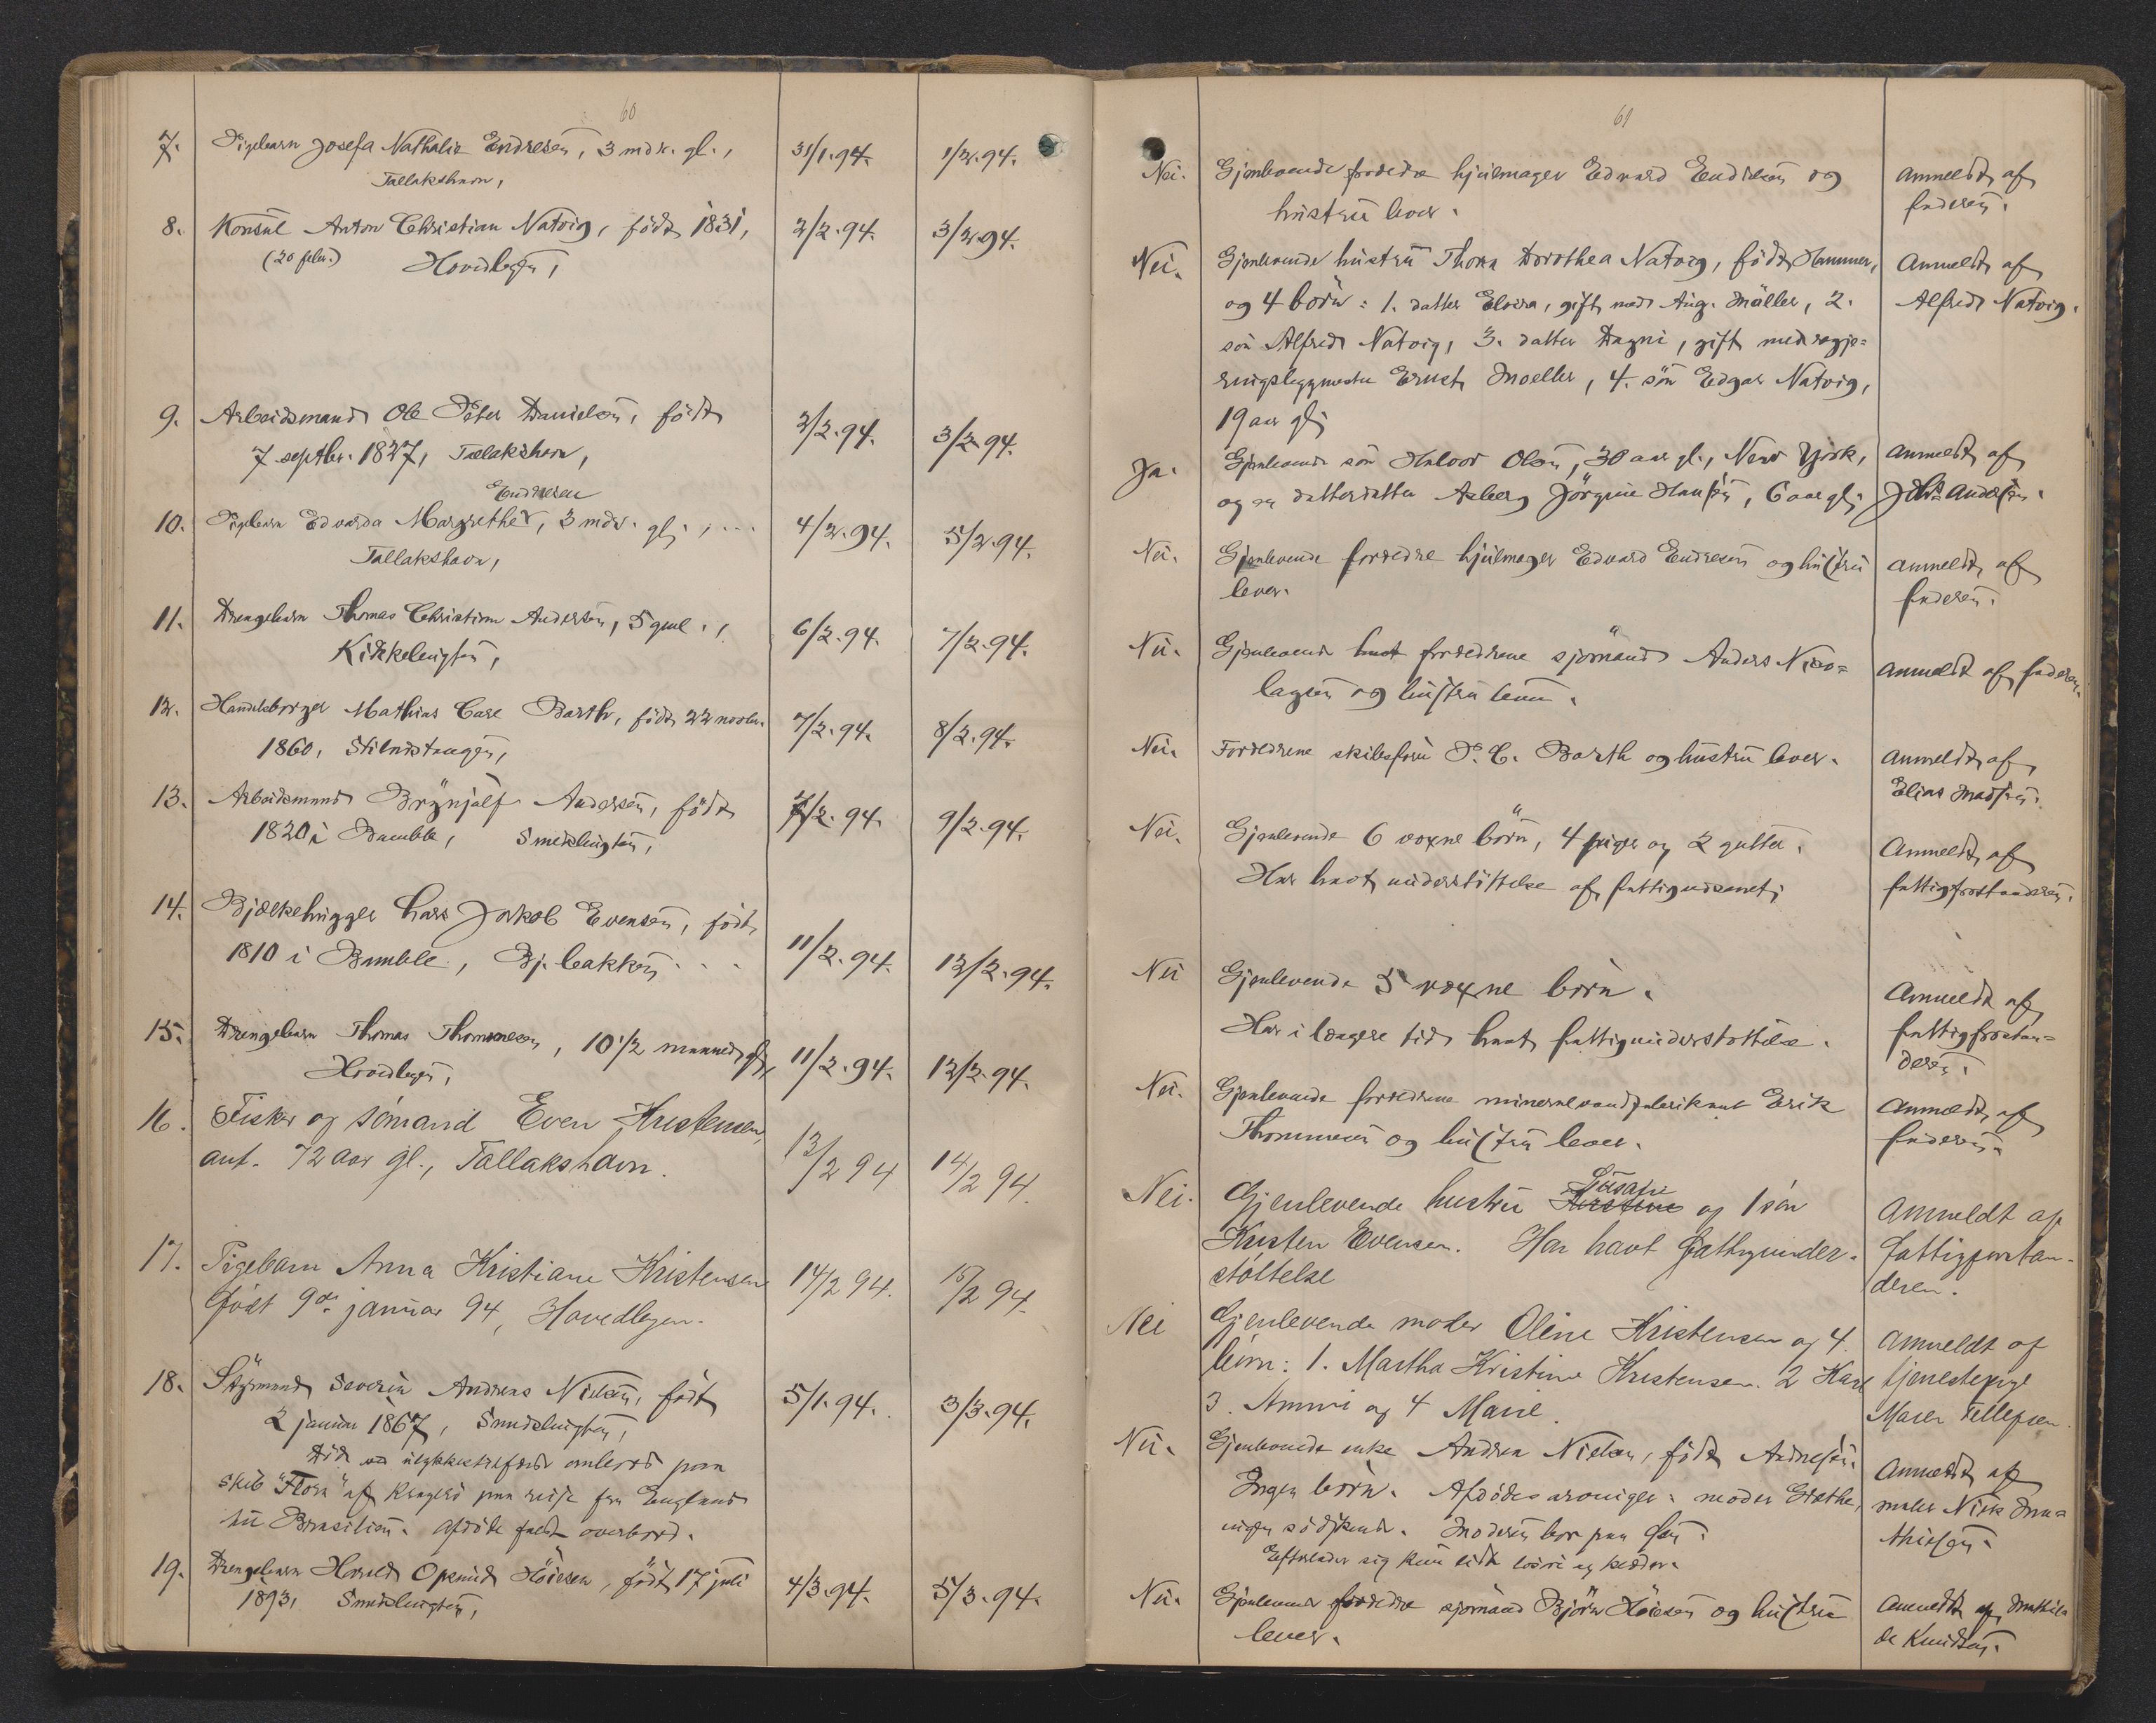 60
7. Pigebarn Josefa Nathalie Endresen, 3 mdr. gl., 31/1.94. 1/2.94.
Tallakshavn,
8. Konsul Anton Christian Natvig, född 1831, 2/2.94. 3/2.94.
(20 febr.) Hovedlejen,
9. Arbeidsmand Ole Peter Danielsen, född 2/2.94. 3/2.94.
7 septbr. 1827, Tallakshavn,
Endresen
10. Pigebarn Edvarda Margrethe, 3 mdr. gl., 4/2.94. 5/2.94.
Tallakshavn,
11. Drengebarn Thomas Christian Andersen, 5 6/2.94. 7/2.94.
Kirkebugten,
12. Handelsborger Mathias Carl Barth, född 22 novbr. 7/2.94. 8/2.94.
1860, Stilnestangen,
13. Arbeidsmand Brynjulf Andersen, född 7/2.94. 9/2.94.
1820 i Bamble, Smedsbugten,
14. Bjælkehugger Lars Jakob Evensen, född 11/2.94. 12/2.94.
1810 i Bamble, Bj. bakken
15. Drengebarn Thomas Thommesen, 10 1/2 maaned gl., 11/2.94. 12/2.94.
Hovedlejen,
16. Fisker og sömand Even Kristensen, 13/2 94 14/2 94.
ant. 72 aar gl., Tallakshavn.
17. Pigebarn Anna Kristiane Kristensen 14/2 94. 15/2 94.
född 9de januar 94, Hovedlejen.
18. Styrmand Severin Andreas Nielsen, född 5/1.94. 3/3.94.
2 januar 1867, Smedsbugten,
Död ved ulykkestilfælde ombord paa
skib "Flora" af Kragerö paa reise fra England
til Brasilien. Afdöde faldt overbord.
19. Drengebarn Harald Höiesen, född 17 juli 4/3.94. 5/3.94.
1893, Smedsbugten,
61
Nei. Gjenlevende forældre hjulmager Edvard Endresen og Anmeldt af
hustru lever. faderen.
Nei. Gjenlevende hustru Thora Dorothea Natvig, född Hammer, Anmeldt af
og 4 börn: 1. datter Elvira, gift med Aug. Möller, 2. Alfred Natvig.
sön Alfred Natvig, 3. datter Dagni, gift med regje-
ringsbygmester Ernst Moeller, 4. sön Edgar Natvig,
19 aar gl.
Ja. Gjenlevende sön Halvor Olsen, 30 aar gl., New Yjork, Anmeldt af
og en datterdatter Asberg Jörgine Hansen, 6 aar gl. Johs Andersen.
Nei. Gjenlevende forældre hjulmager Edvard Endresen og hustru Anmeldt af
lever. faderen.
Nei. Gjenlevende forældrene sjömand Anders Nico- Anmeldt af faderen.
laysen og hustru lever.
Nei. Forældrene skibsförer P. C. Barth og hustru lever. Anmeldt af
Elias Madsen.
Nei. Gjenlevende 6 voxne börn, 4 piger og 2 gutter. Anmeldt af
Har havt understöttelse af fattigvæsenet. fattigforstanderen.
Nei Gjenlevende 5 voxne börn. Anmeldt af
Har i længere tid havt fattigunderstöttelse. fattigforstan-
deren.
Nei. Gjenlevende forældrene mineralvandfabrikant Erik Anmeldt af
Thommesen og hustru lever. faderen.
Susane
Nei. Gjenlevende hustru Kirstine og 1 sön Anmeldt af
Kristen Evensen. Har havt fattigunder- fattigforstan-
stöttelse deren.
Nei Gjenlevende moder Oline Kristensen og 4 Anmeldt af
börn: 1. Martha Kristine Kristensen. 2 Karl tjenestepige
3. Ammi og 4 Marie. Maren Tellefsen.
Nei. Gjenlevende enke Andrea Nielsen, född Andresen. Anmeldt af
Ingen börn. Afdödes arvinger: moder Grethe, maler Niels Ma-
ingen södskende. Moderen bor paa Öen. thiesen.
Efterlader sig kun lidt lösöre og klæder.
Nei. Gjenlevende forældre sjömand Björn Höiesen og hustru Anmeldt af Mathil-
lever. de Knudsen.